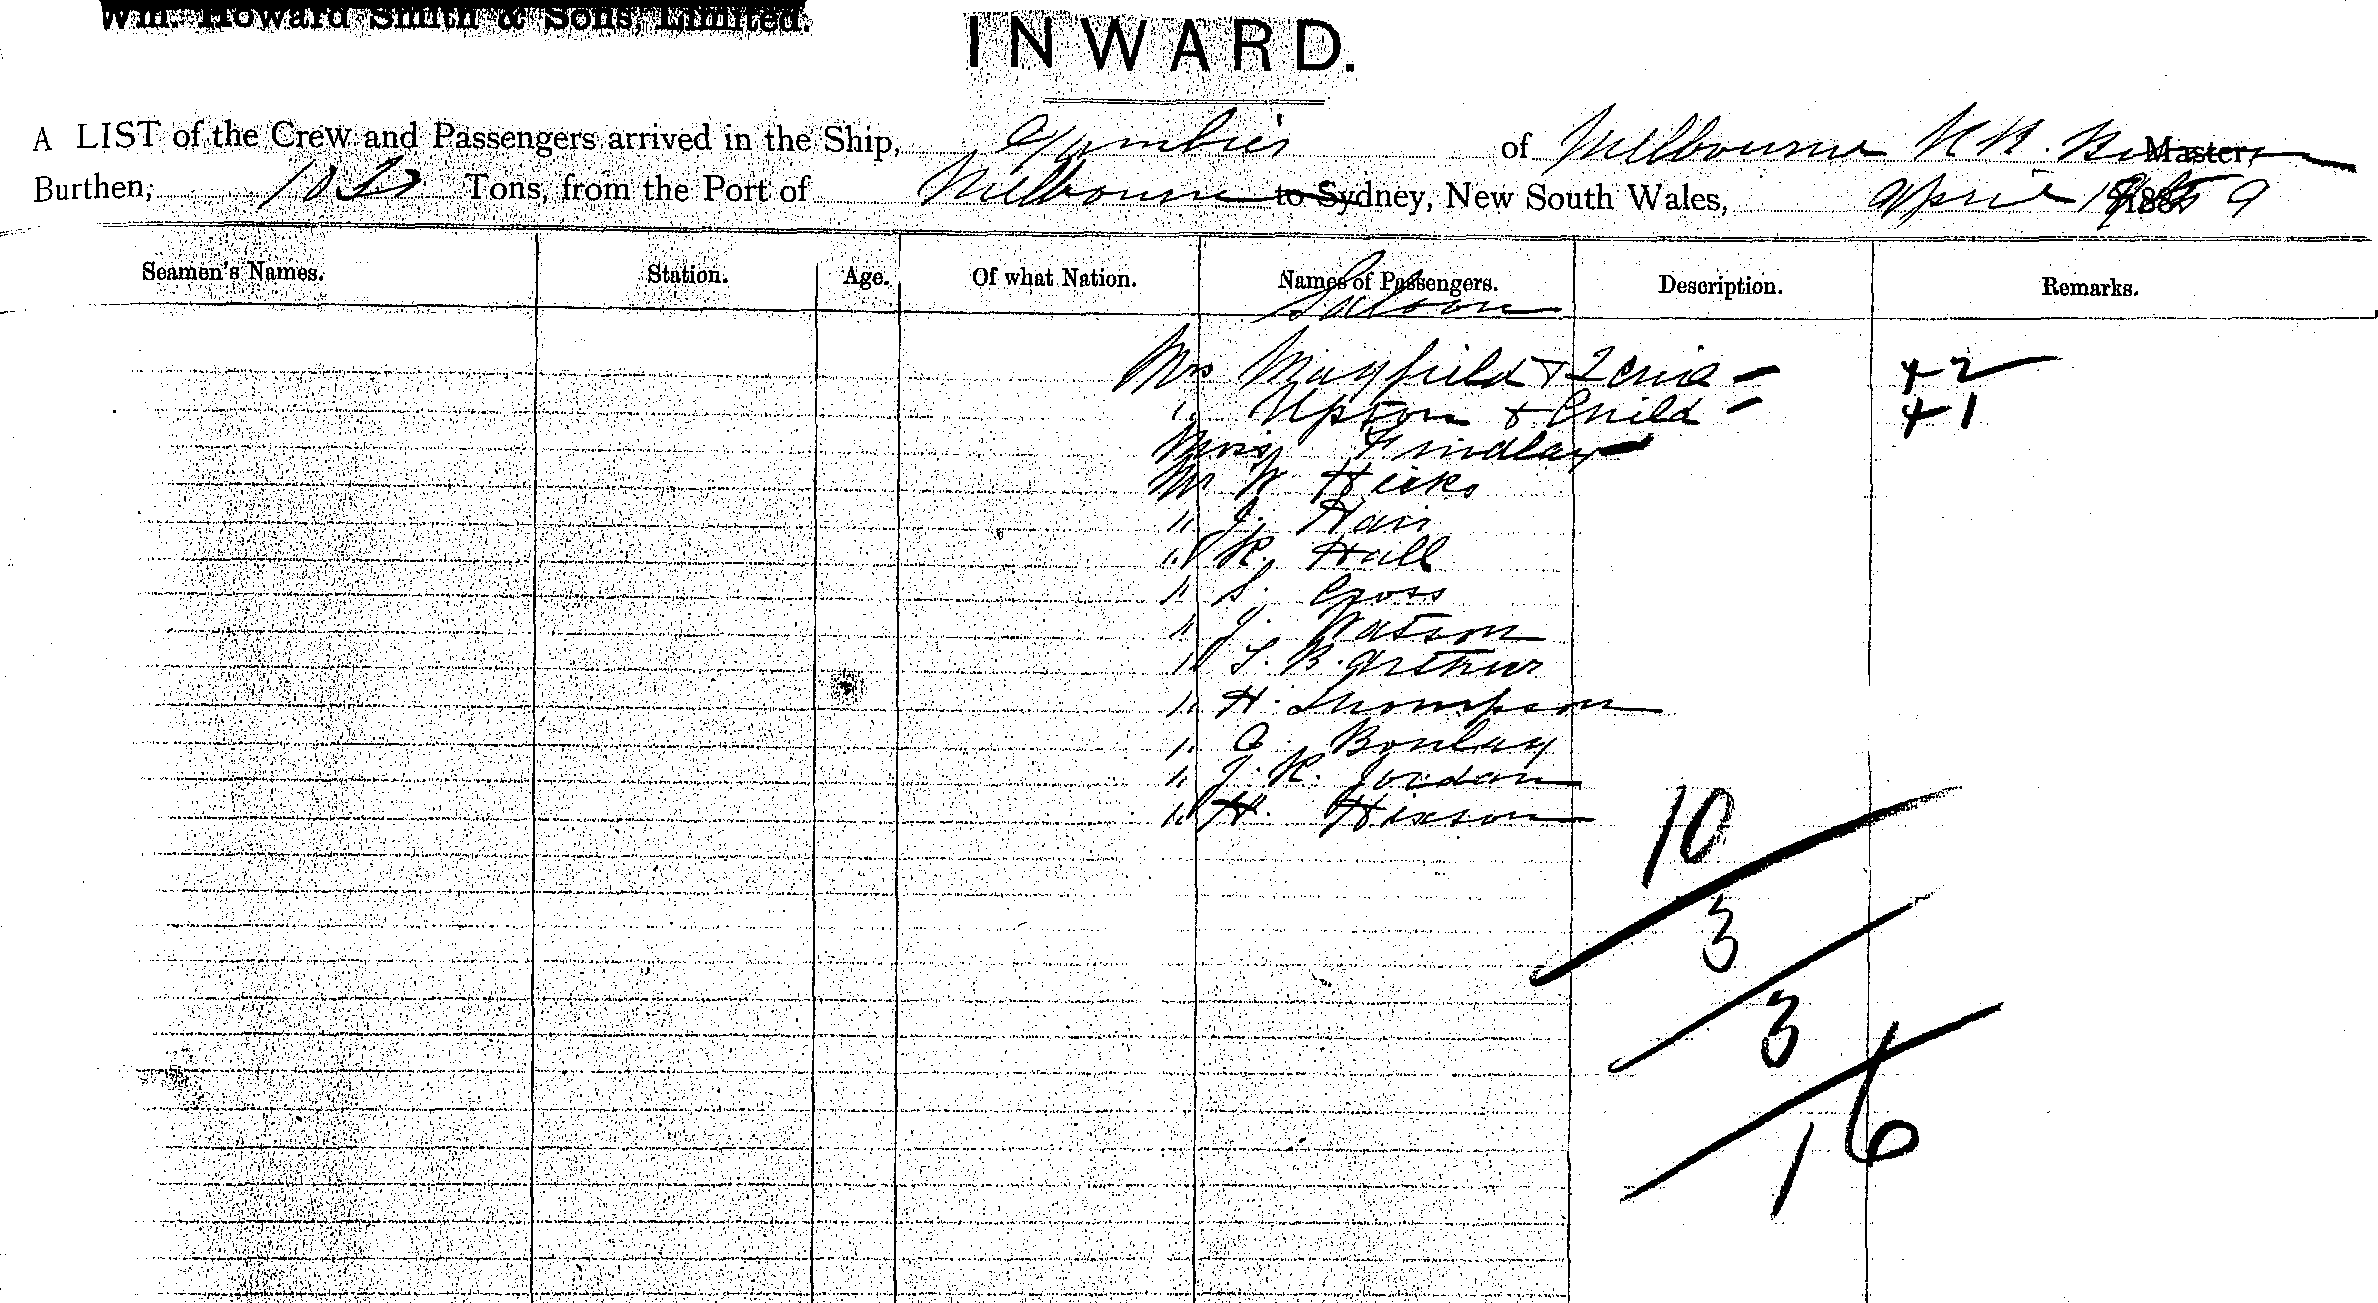 Wm. Howard Smith & Sons, Limited.
INWARD.
A LIST of the Crew and Passengers arrived in the Ship, Gambier of Melbourne Master,
Burthen, Tons, from the Port of Melbourne to Sydney, New South Wales, April 188 9
Seamen's Names. Station. Age. Of what Nation. Names of Passengers. Description. Remarks.
Saloon
Mrs Mayfield & 2 +2
" Upton & Child +1
Miss Findlay
Mr W Hicks
" J. Hair
" R. Hall
" S. Cross
" J. Watson
" L. B. Arthur
" H. Thompson
" Boulay
" J. R. Jordan
" H. Hixson
10
3
3
16